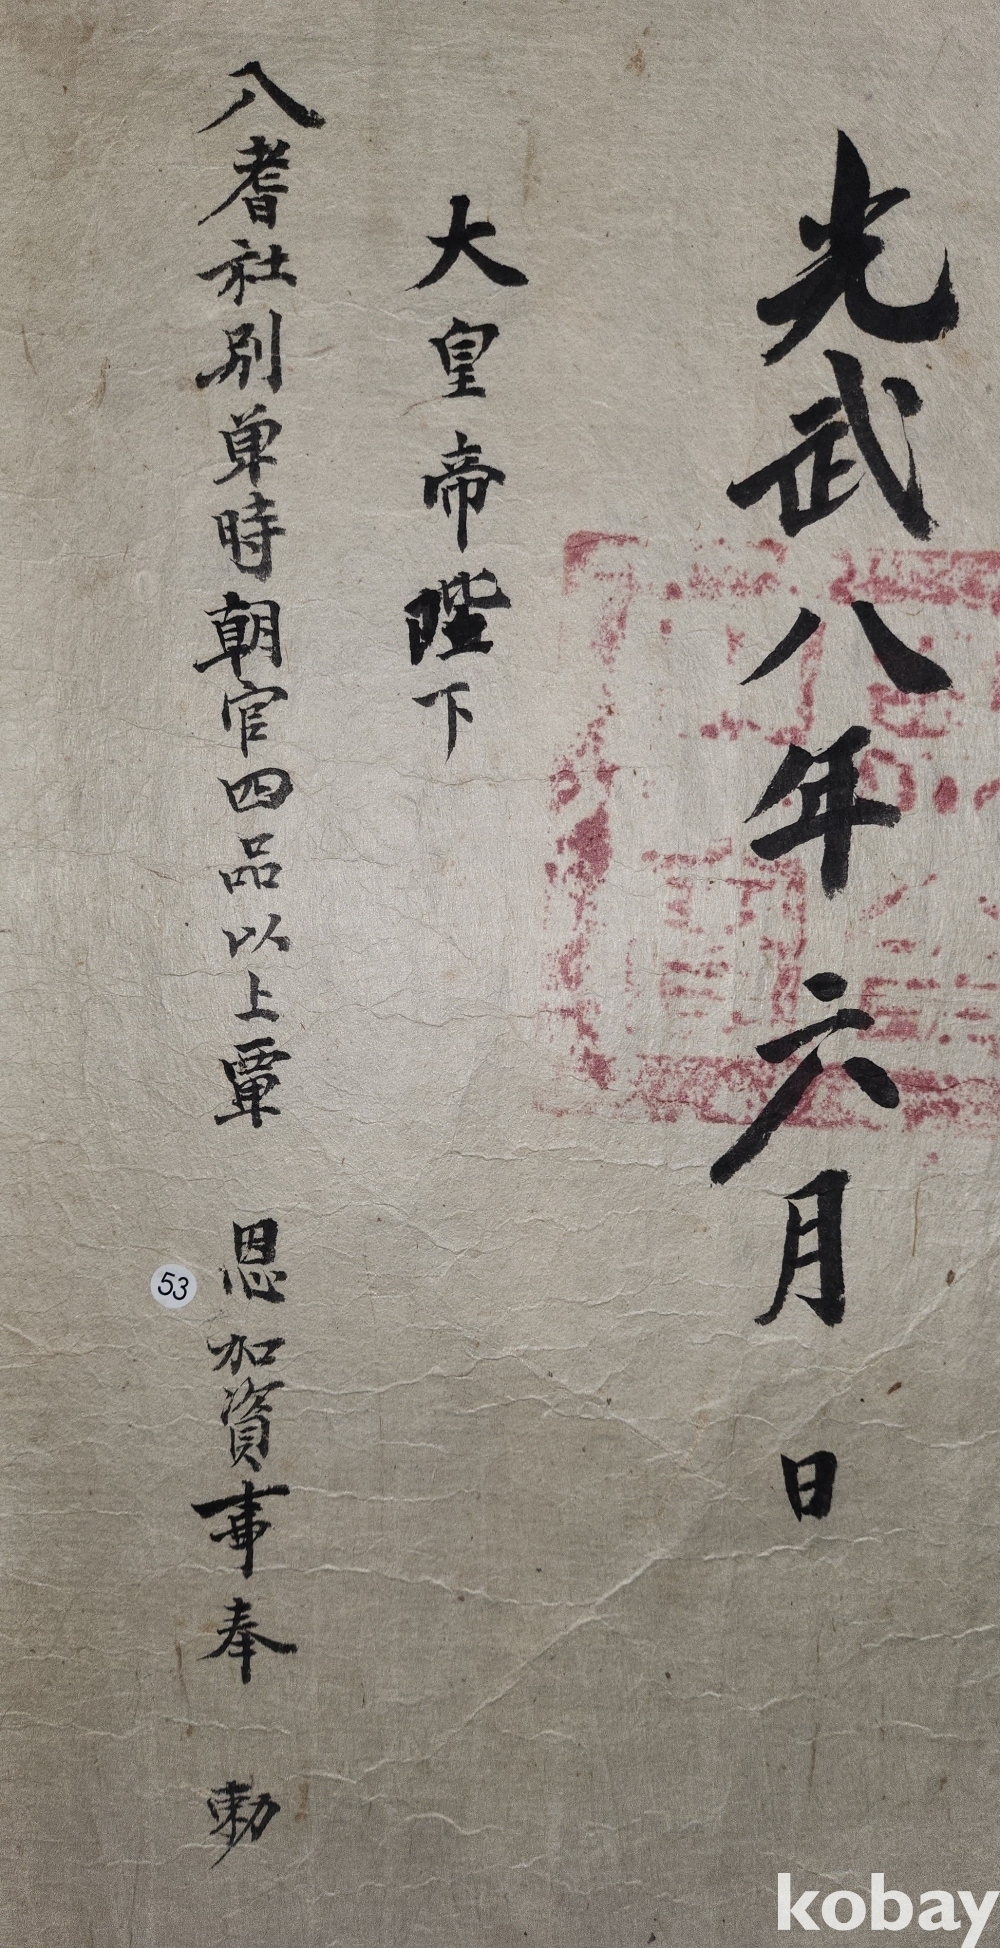 光武八年六月 日
大皇帝陛下
入耆社別单時朝官四品以上覃 恩加資事奉 勅
53
kobay